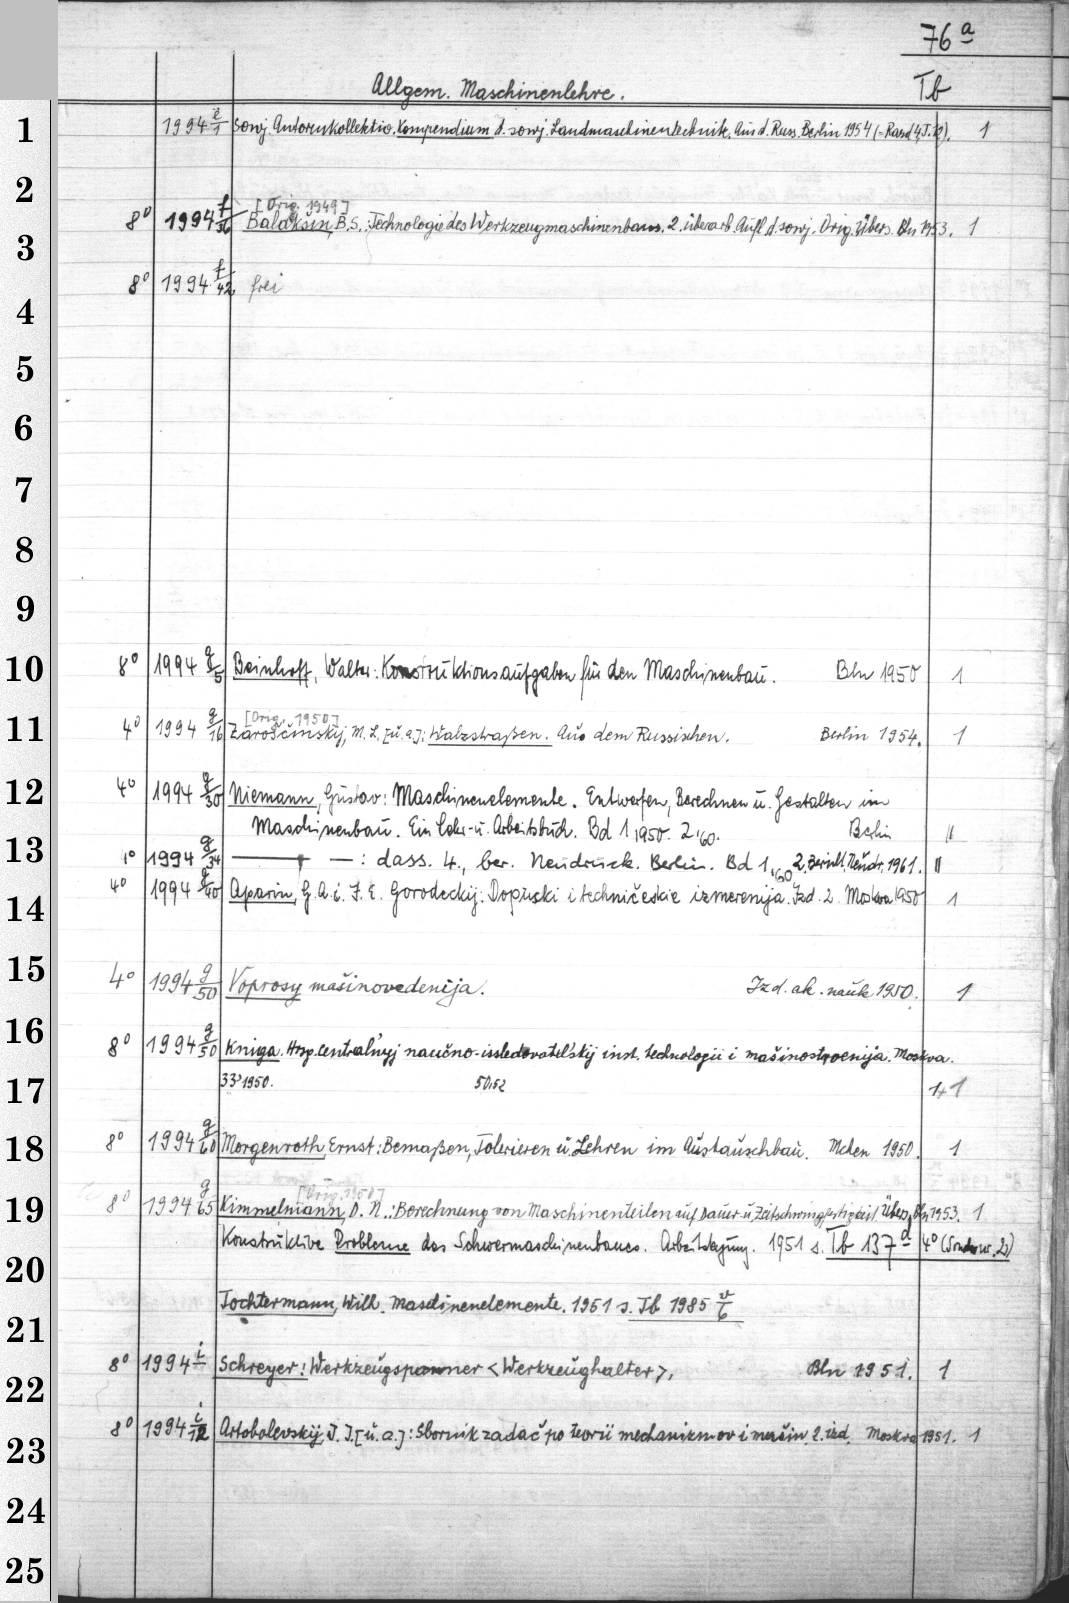 76 a
Allgem. Maschinenlehre. Tb
1 1994 e/1 Sowj. Autorenkollektiv. Kompendium d. sowj. Landmaschinentechnik. Aus d. Russ. Berlin 1954 1
2
[Orig. 1949]
8° 1994 f/36 Balakšin, B.S.: Technologie des Werkzeugmaschinenbaus. 2. überarb. Aufl. d. sowj. Orig. Übers. Bln 1953. 1
3
8° 1994 f/42 frei
4
5
6
7
8
9
10 8° 1994 g/5 Beinhoff, Walter: Konstruktionsaufgaben für den Maschinenbau. Bln 1950 1
[Orig. 1950]
11 4° 1994 g/16 Zaroščinskij, M. L. [u. a.]: Walzstraßen. Aus dem Russischen. Berlin 1954. 1
12 4° 1994 g/30 Niemann, Gustav: Maschinenelemente. Entwerfen, Berechnen u. Gestalten im
Maschinenbau. Ein Lehr- u. Arbeitsbuch. Bd 1, 1950. 2, 60. Berlin II
13 1994 g/34 — — : dass. 4., ber. Neudruck. Berlin. Bd 1, 60 2. bericht. Neudr. 1961. II
14 4° 1994 g/40 Aparin, G. A. i. F. E. Gorodeckij: Dopuski i techničeskie izmerenija. Izd. 2. Moskva 1950 1
15 4° 1994 g/50 Voprosy mašinovedenija. Izd. ak. nauk 1950. 1
16 8° 1994 g/50 Kniga. Hrsg. Central'nyj naučno-issledovatel'skij inst. technologii i mašinostroenija. Moskva.
17 33, 1950. 50, 52 1+1
18 8° 1994 g/60 Morgenroth, Ernst: Bemaßen, Tolerieren u. Lehren im Austauschbau. Mchen 1950. 1
[Orig. 1950]
19 8° 1994 g/65 Kimmelmann, D. N.: Berechnung von Maschinenteilen auf Dauer- u. Zeitschwingfestigkeit. Übers. Bln 1953. 1
Konstruktive Probleme des Schwermaschinenbaues. Arbeitstagung. 1951 s. Tb 137 a 4° (Sonder nr. 2)
20
Tochtermann, Will. Maschinenelemente. 1951 s. Tb 1985 v/6
21
8° 1994 i/ Schreyer: Werkzeugspanner <Werkzeughalter>. Bln 1951. 1
22
8° 1994 i/12 Artobolevskij, I. I. [u. a.]: Sbornik zadač po teorii mechanizmov i mašin. 2. izd. Moskva 1951. 1
23
24
25